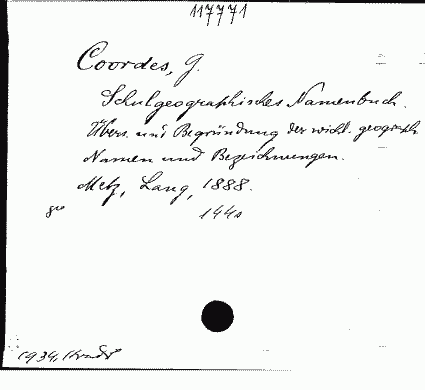 117771
Coordes, G.
Schulgeographisches Namenbuch.
Übers. und Begründung der wicht. geograph.
Namen und Bezeichnungen.
Metz, Lang, 1888.
144s
1934,